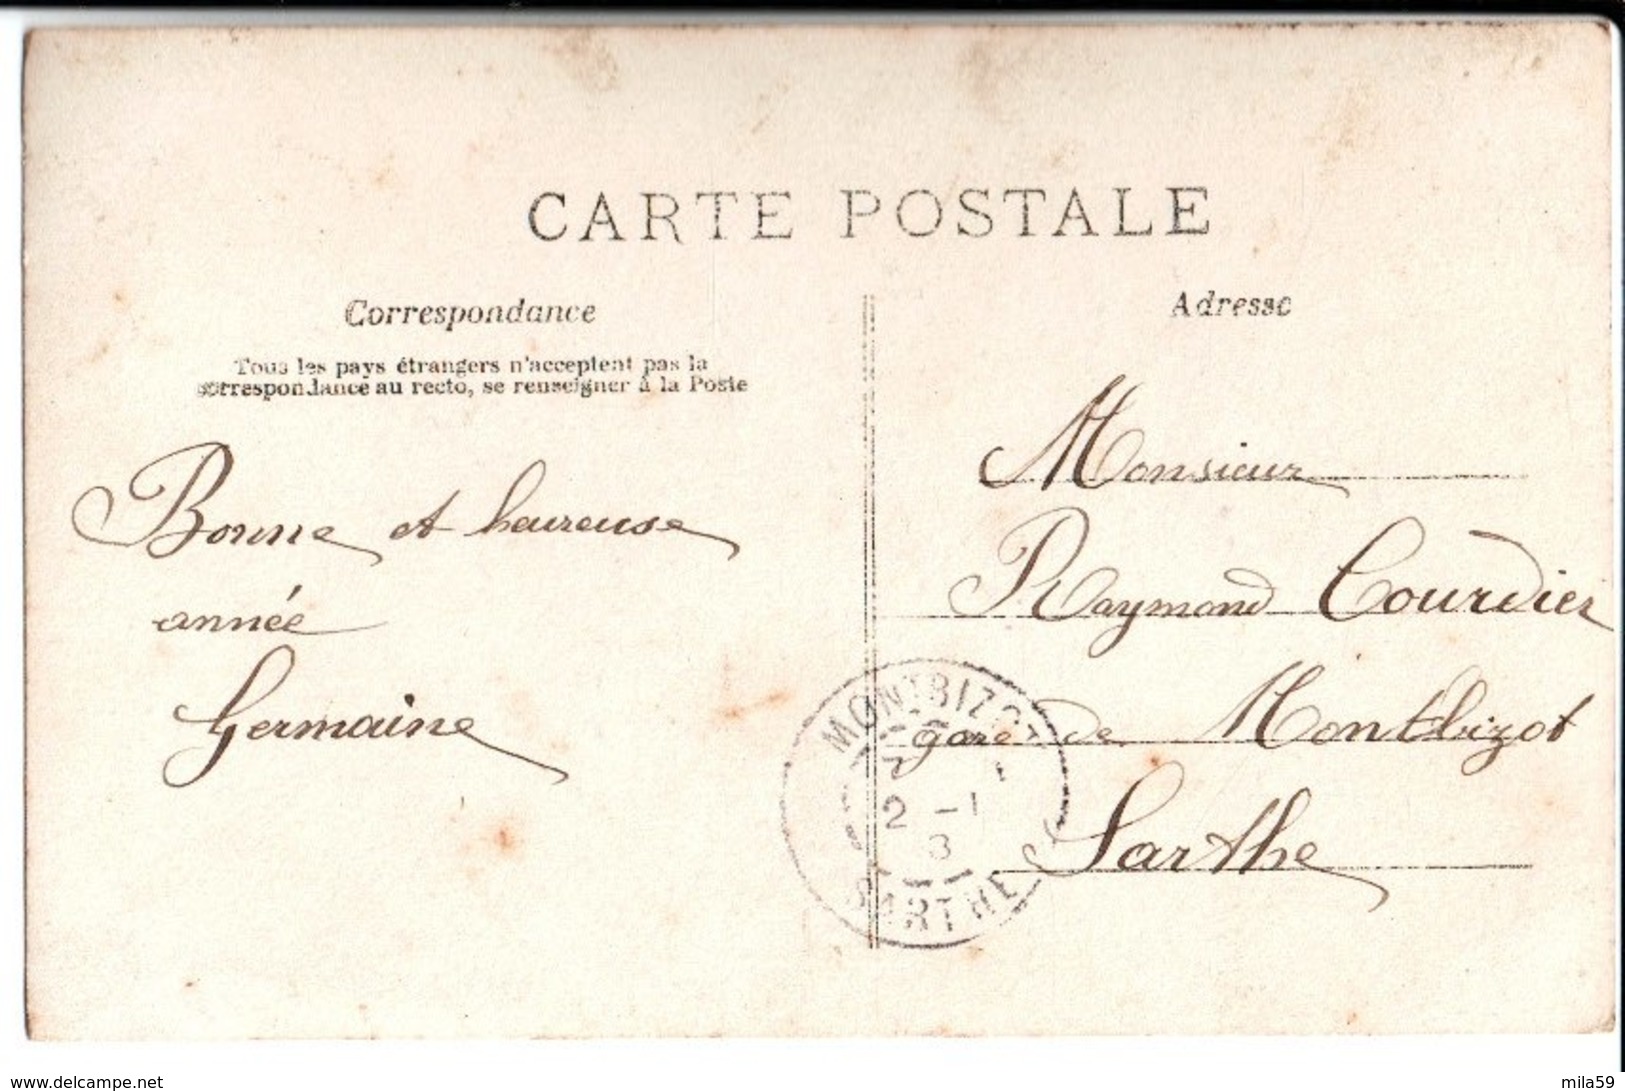 CARTE POSTALE
Correspondance
Tous les pays étrangers n'acceptent pas la
correspondance au recto, se renseigner à la Poste
Bonne et heureuse
année
Germaine
Adresse
Monsieur
Raymond Courdier
gare de Montbizot
Sarthe
MONTBIZOT
2 -1
8
SARTHE
www.delcampe.net
mila59